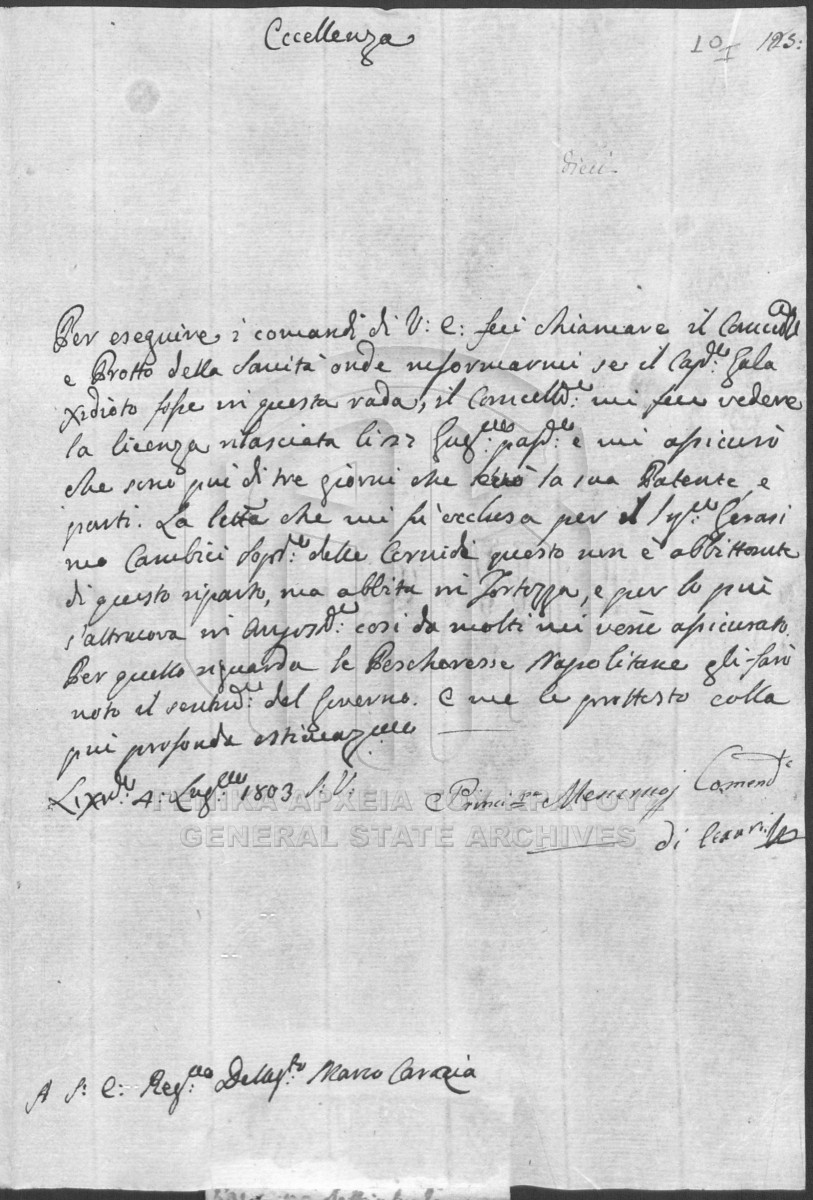 Eccellenza
10 I 123:
dieci
Per eseguire i comandi di V: E: feci chiamare il
e Protto della Sanità onde informarmi se il Cap:o Gala
xidioto fosse in questa rada, il Cancell:e mi fece vedere
la licenza rilasciata li 27 Giug:o pass:o e mi assicurò
che sono più di tre giorni che levò la sua Patente, e
partì. La lettera che mi fù occlusa per il Sig:r Gerasi
mo Cambici delle Cernide questo non è abbittante
di questo riparto, ma abbita in Fortezza, e per lo più
s'attrova in cosi da molti mi vene assicurato.
Per quello riguarda le Pescheresse Napolitane gli farò
noto il sentim:to del Governo. E me le prottesto colla
più profonda estimaz:ne
Lixuri 4: Lug:o 1803 S: V:
Comend:e
di
ΓΕΝΙΚΑ ΑΡΧΕΙΑ ΤΟΥ ΚΡΑΤΟΥΣ
GENERAL STATE ARCHIVES
A S: E: Reg:o Delleg:to Marco